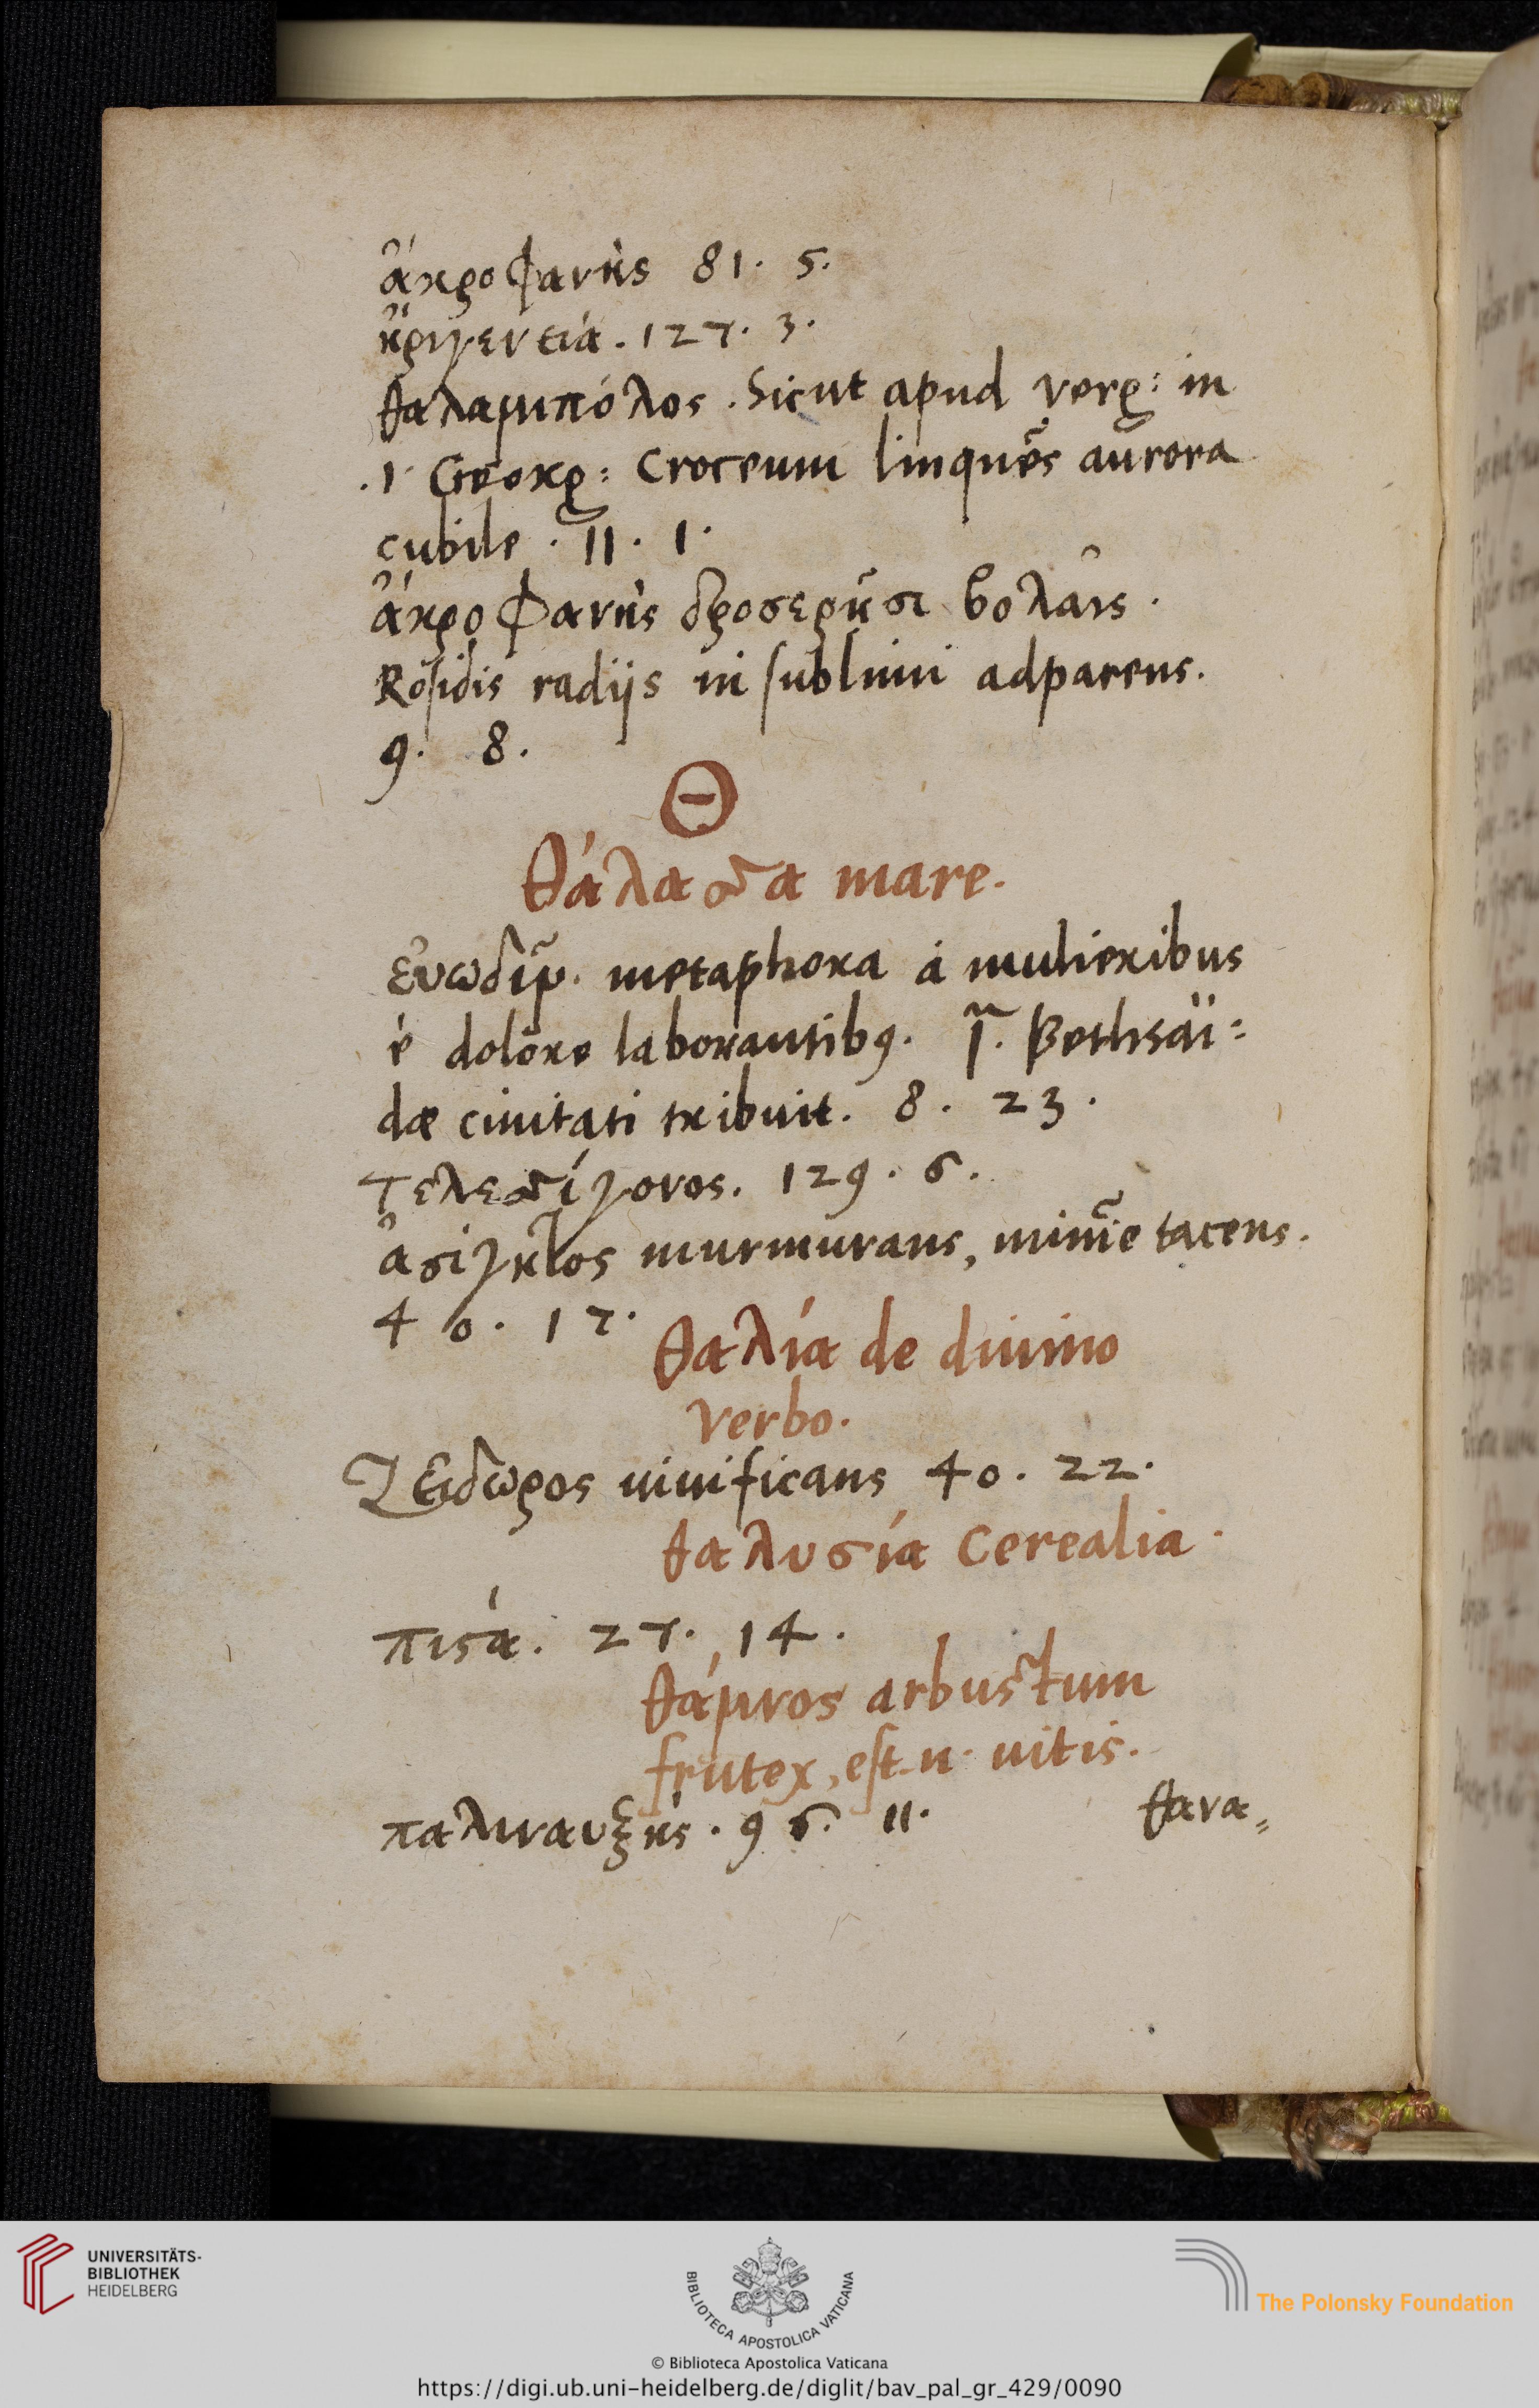 ἀκροφανὴς 81. 5.
ἠριγενειά. 127. 3.
θαλαμιπόλος. Sicut apud verg: in
.1. Georg: Croceum linquẽs aurora
cubile. 11. 1.
ἀκροφανὴς δροσερῆσι βολαῖς.
Rosidis radijs in sublimi adparens.
9. 8.
Θ
θάλασσα mare.
εὐωδῖν. metaphora á mulieribus
é dolore laborantibꝫ. Bethsai=
dæ ciuitati tribuit. 8. 23.
τελεσσίγονος. 129. 6.
ἀσίγητος murmurans, minime tacens.
40. 17.
θαλία de diuino
verbo.
Ζείδωρος uiuificans 40. 22.
θαλυσία Cerealia.
πιςά. 27. 14.
θάμνος arbustum
frutex, est n. uitis.
παλιναυξὴς. 96. 11.
θανα=
UNIVERSITÄTS-
BIBLIOTHEK
HEIDELBERG
BIBLIOTECA APOSTOLICA VATICANA
The Polonsky Foundation
© Biblioteca Apostolica Vaticana
https://digi.ub.uni-heidelberg.de/diglit/bav_pal_gr_429/0090